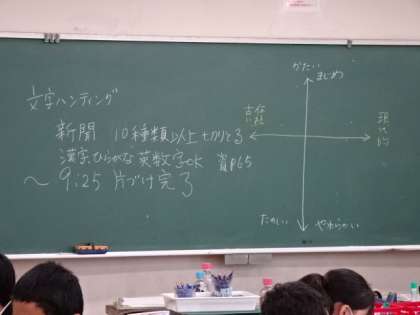 文字ハンティング
新聞 10種類以上切りとる
漢字、ひらがな 英数字OK 資P65
～9:25 片づけ完了
かたい
まじめ
古い
伝統
現代的
たのしい
やわらかい